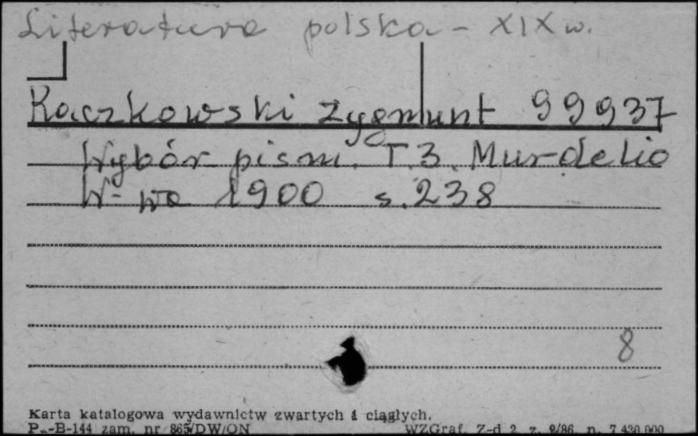 Literatura polska - XIX w.
Kaczkowski Zygmunt 99937
Wybór pism. T 3. Murdelio
W-wa 1900 s. 238
8
Karta katalogowa wydawnictw zwartych i ciągłych.
P.-B-144 zam. nr 865/DW/ON WZGraf. Z-d 2 z. 8/86. n. 7 430 000